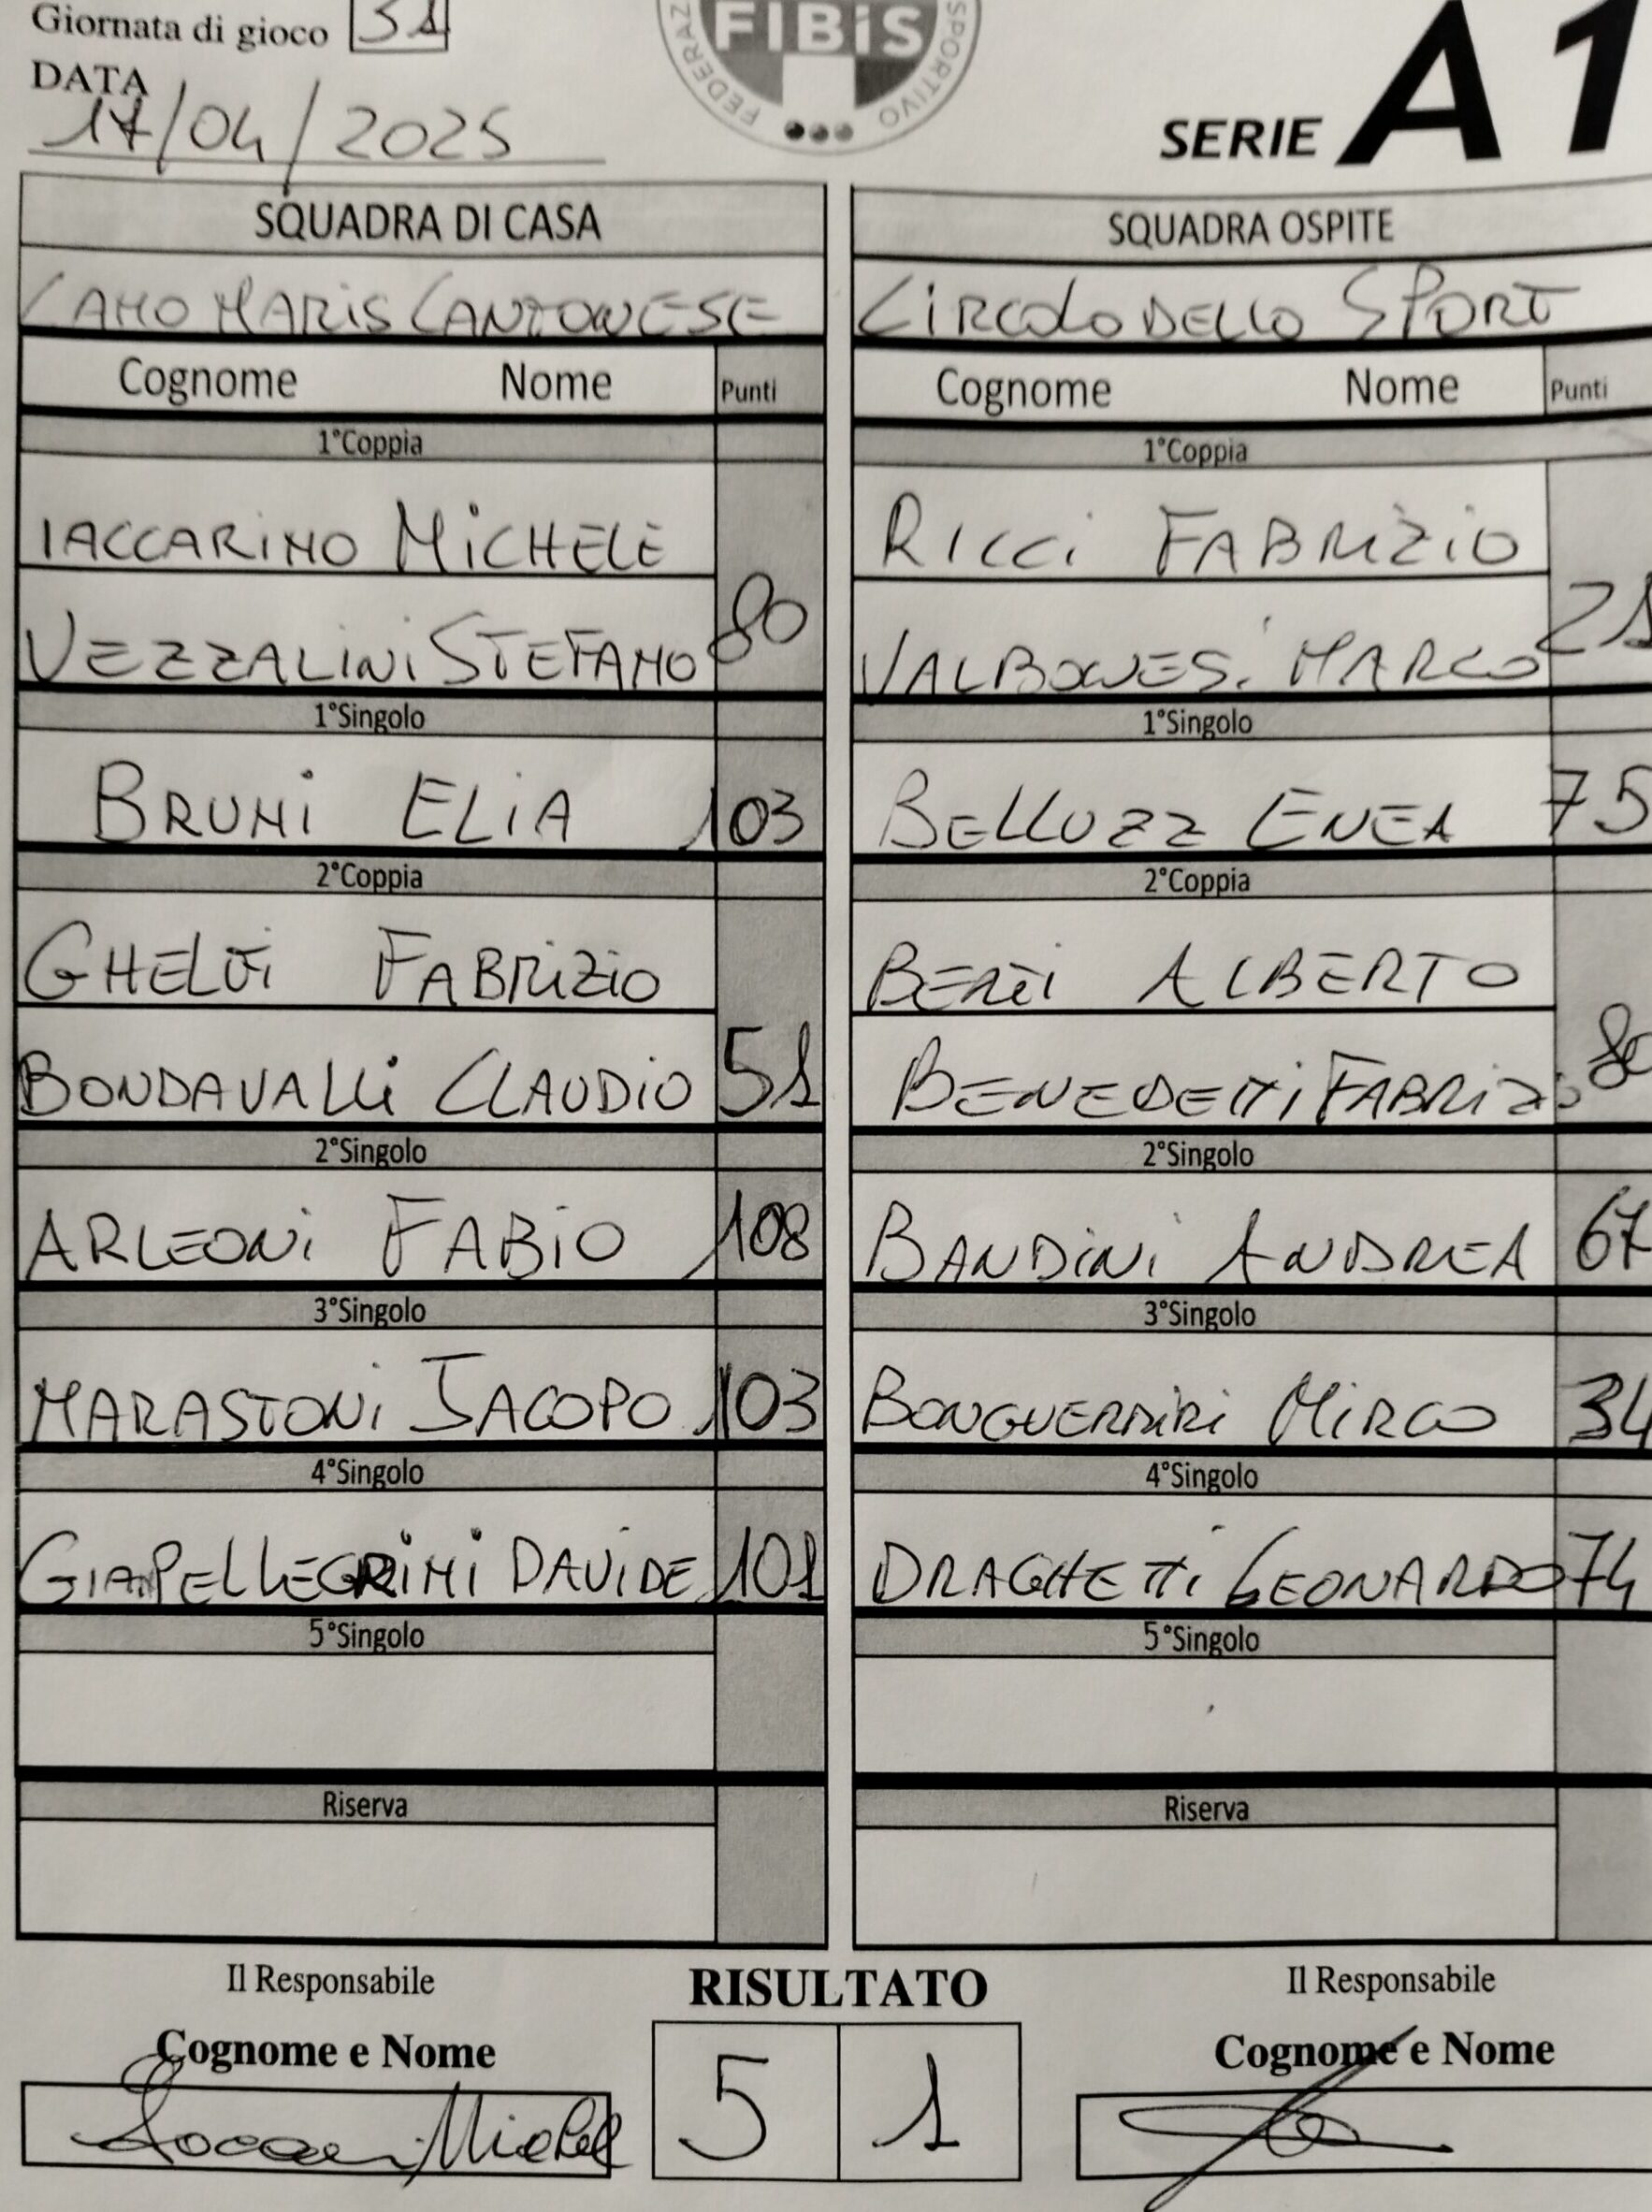 Giornata di gioco 31
DATA
17/04/2025
FEDERAZ SPORTIVO
FIBiS
SERIE A1
SQUADRA DI CASA SQUADRA OSPITE
MARIS CANTONESE CIRCOLO DELLO SPORT
Cognome Nome Punti Cognome Nome Punti
1°Coppia 1°Coppia
IACCARINO MICHELE RICCI FABRIZIO
VEZZALINI STEFANO 80 VALBONESI MARCO 21
1°Singolo 1°Singolo
BRUNI ELIA 103 BELLUZZ ENEA 75
2°Coppia 2°Coppia
GHELFI FABRIZIO ALBERTO
BONDAVALLI CLAUDIO 51 BENEDETTI FABRIZIO 80
2°Singolo 2°Singolo
ARLEONI FABIO 108 BANDINI ANDREA 67
3°Singolo 3°Singolo
MARASTONI JACOPO 103 BONGUERRIRI MIRCO 34
4°Singolo 4°Singolo
GIAPELLEGRINI DAVIDE 101 DRAGHETTI LEONARDO 74
5°Singolo 5°Singolo
Riserva Riserva
Il Responsabile RISULTATO Il Responsabile
Cognome e Nome Cognome e Nome
5 1